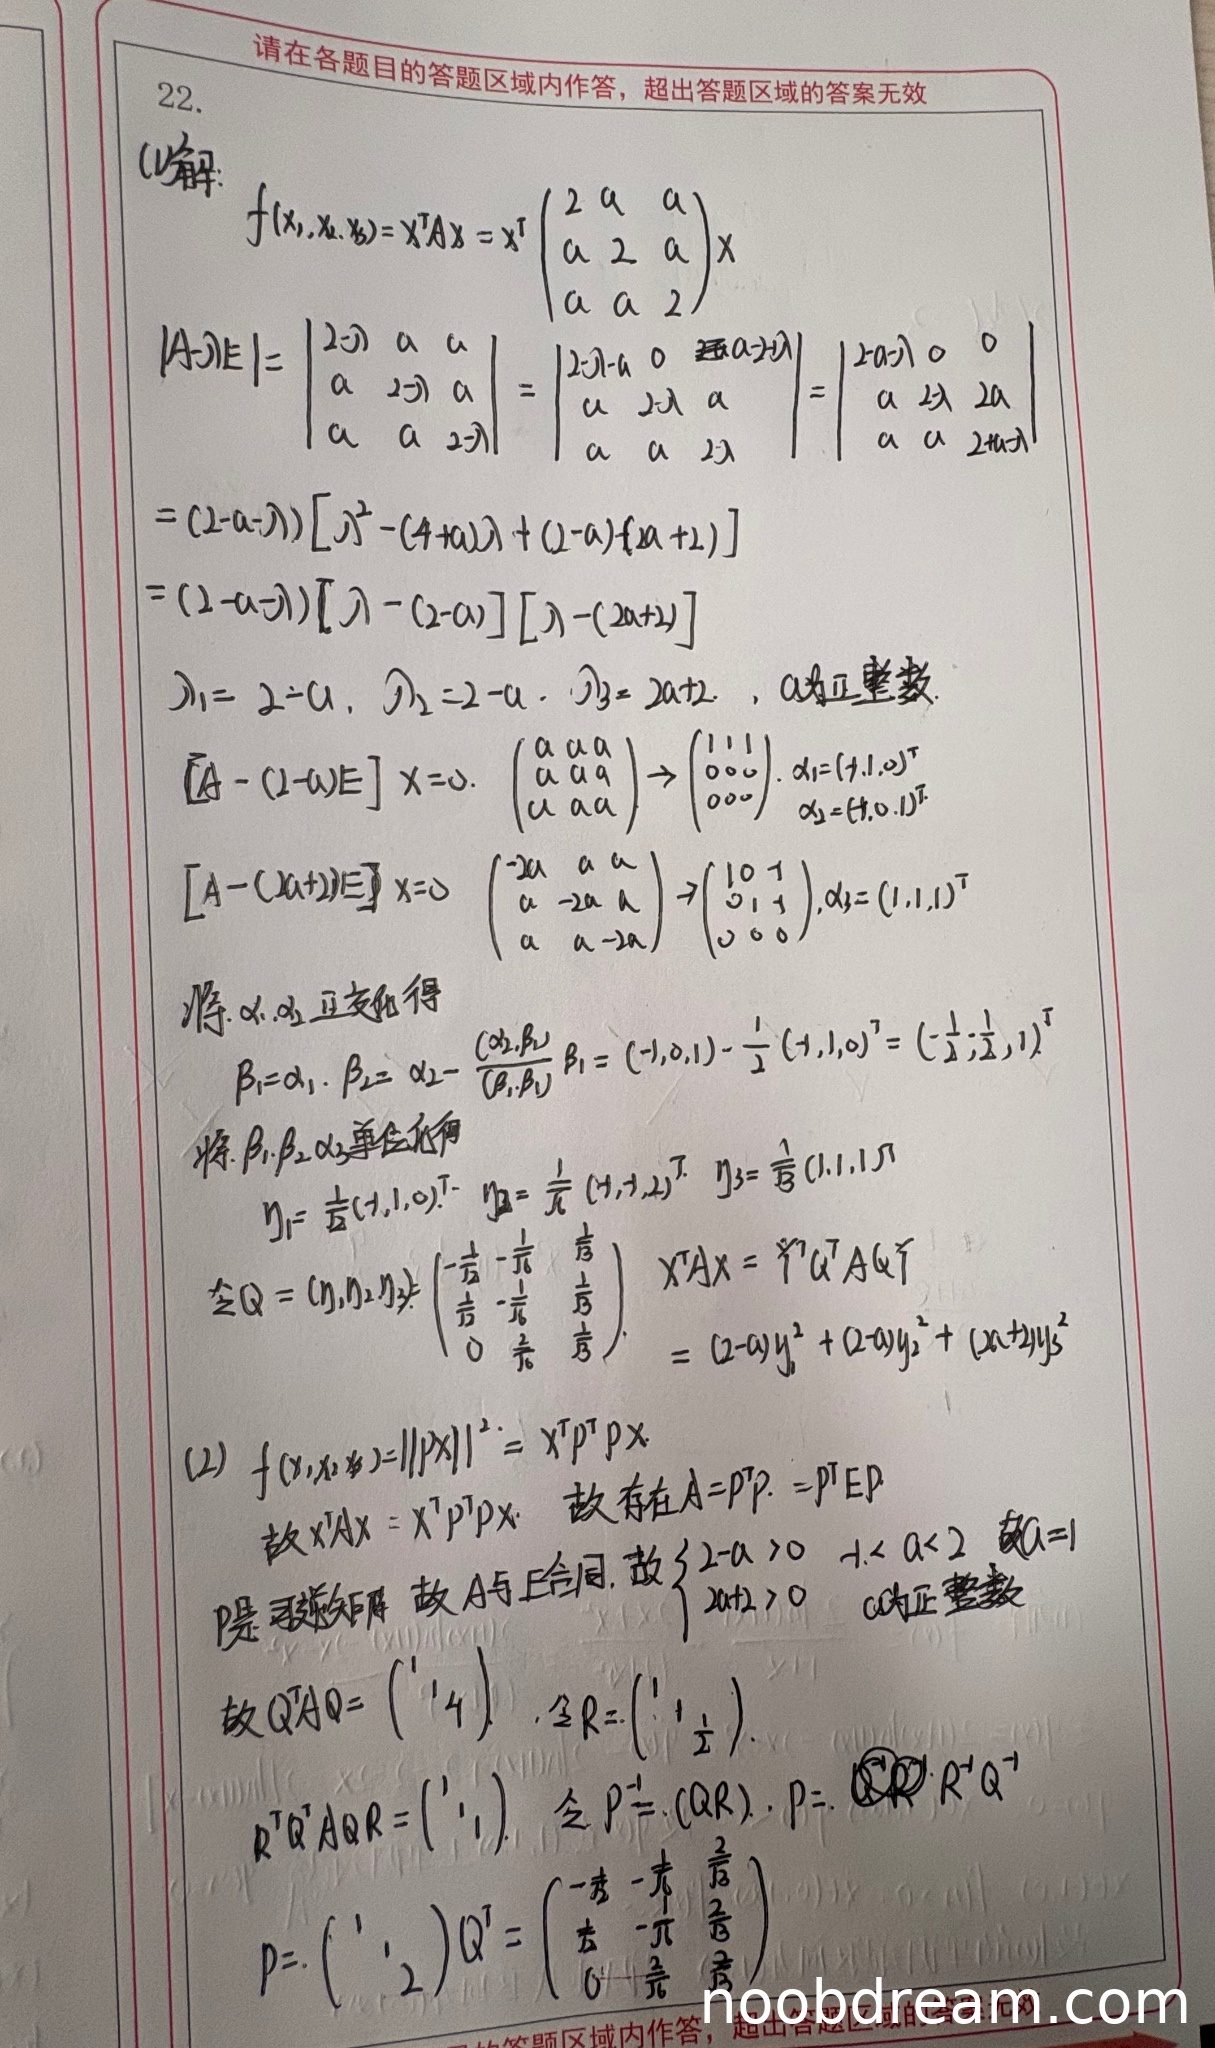 请在各题目的答题区域内作答，超出答题区域的答案无效
22.
(1)解:
f(x₁,x₂,x₃)=XᵀAX=Xᵀ(2 a a; a 2 a; a a 2)X
|A-λE|=|2-λ a a; a 2-λ a; a a 2-λ|=|2-λ-a 0 a-2+λ; a 2-λ a; a a 2-λ|=|2-a-λ 0 0; a 2-λ 2a; a a 2+a-λ|
=(2-a-λ)[λ²-(4+a)λ+(2-a)(2a+2)]
=(2-a-λ)[λ-(2-a)][λ-(2a+2)]
λ₁=2-a, λ₂=2-a. λ₃=2a+2. , a为正整数.
[A-(2-a)E]X=0. (a a a; a a a; a a a)→(1 1 1; 0 0 0; 0 0 0). α₁=(-1,1,0)ᵀ
α₂=(-1,0,1)ᵀ
[A-(2a+2)E]X=0 (-2a a a; a -2a a; a a -2a)→(1 0 -1; 0 1 -1; 0 0 0), α₃=(1,1,1)ᵀ
将α₁,α₂正交化得
β₁=α₁. β₂=α₂-(α₂,β₁)/(β₁,β₁)β₁=(-1,0,1)-1/2(-1,1,0)ᵀ=(-1/2,-1/2,1)ᵀ
将β₁.β₂ α₃单位化得
η₁=1/√2(-1,1,0)ᵀ. η₂=1/√6(-1,-1,2)ᵀ. η₃=1/√3(1,1,1)ᵀ
令Q=(η₁,η₂,η₃)=(-1/√2 -1/√6 1/√3; 1/√2 -1/√6 1/√3; 0 2/√6 1/√3). XᵀAX=YᵀQᵀAQY
=(2-a)y₁²+(2-a)y₂²+(2a+2)y₃²
(2) f(x₁,x₂,x₃)=||PX||²=XᵀPᵀPX.
故XᵀAX=XᵀPᵀPX. 故存在A=PᵀP.=PᵀEP.
P是可逆矩阵 故A与E合同.故{2-a>0 2a+2>0 -1<a<2 故a=1
a为正整数
故QᵀAQ=(1 1 4). 令R=(1 1 1/2).
RᵀQᵀAQR=(1 1 1). 令P⁻¹=(QR). P=R⁻¹Q⁻¹
P=(1 1 2)Qᵀ=(-1/√2 -1/√6 2/√3; 1/√2 -1/√6 2/√3; 0 2/√6 2/√3)
noobdream.com
的答题区域内作答，超出答题区域的答案无效